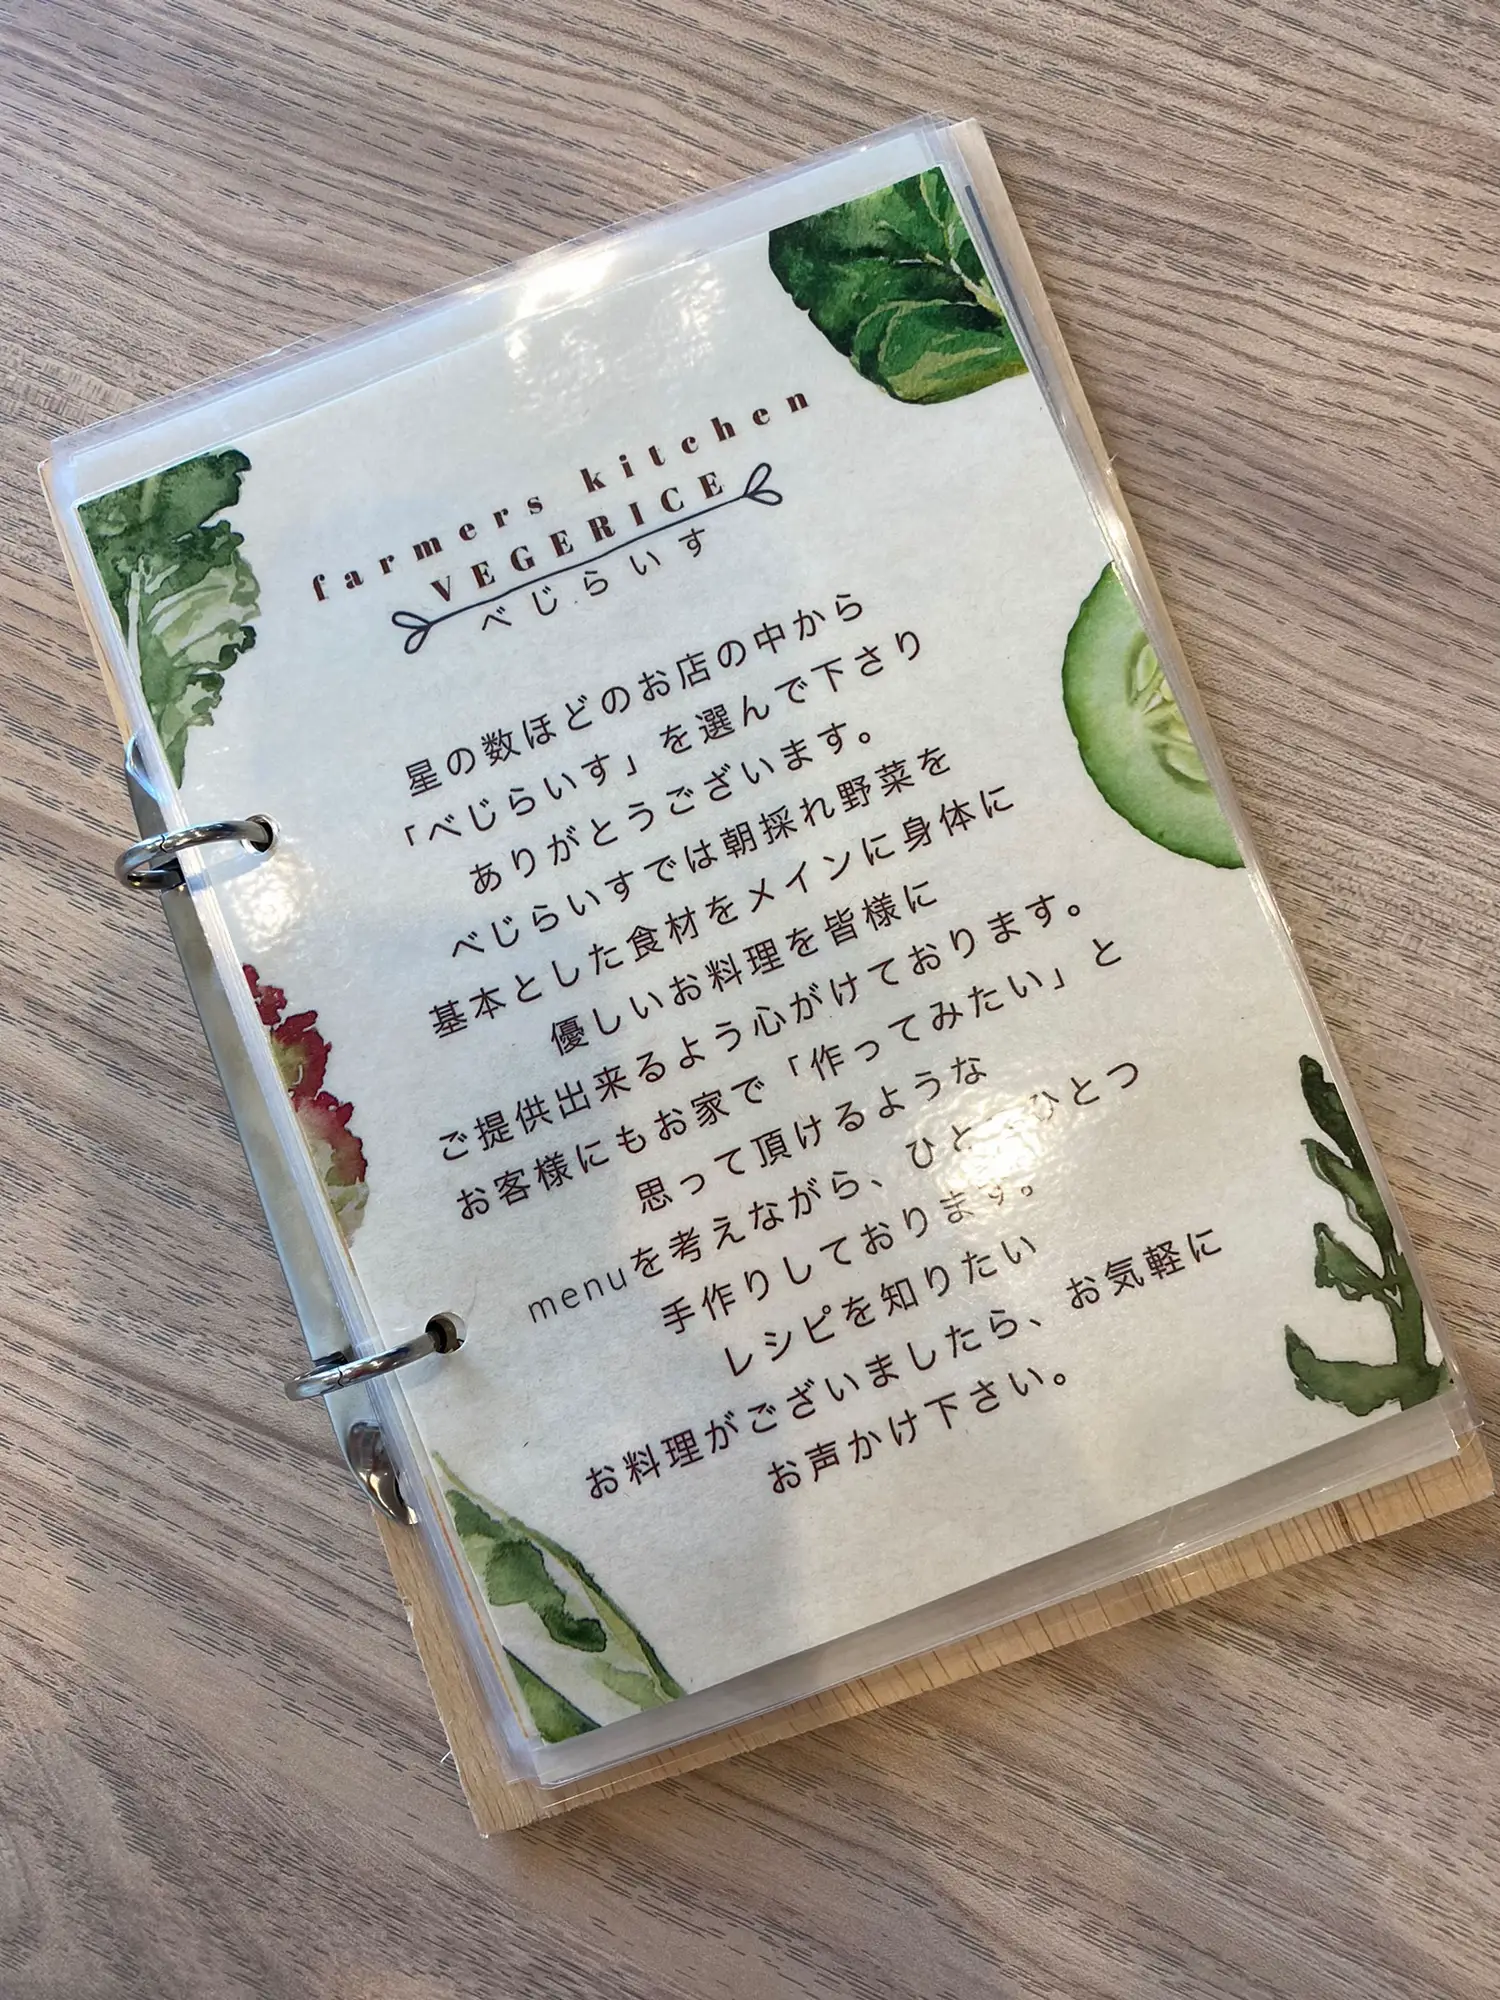 farmers kitchen
VEGERICE
べじらいす
星の数ほどのお店の中から
「べじらいす」を選んで下さり
ありがとうございます。
べじらいすでは朝採れ野菜を
基本とした食材をメインに身体に
優しいお料理を皆様に
ご提供出来るよう心がけております。
お客様にもお家で「作ってみたい」と
思って頂けるような
menuを考えながら、ひと ひとつ
手作りしております。
レシピを知りたい
お料理がございましたら、お気軽に
お声かけ下さい。